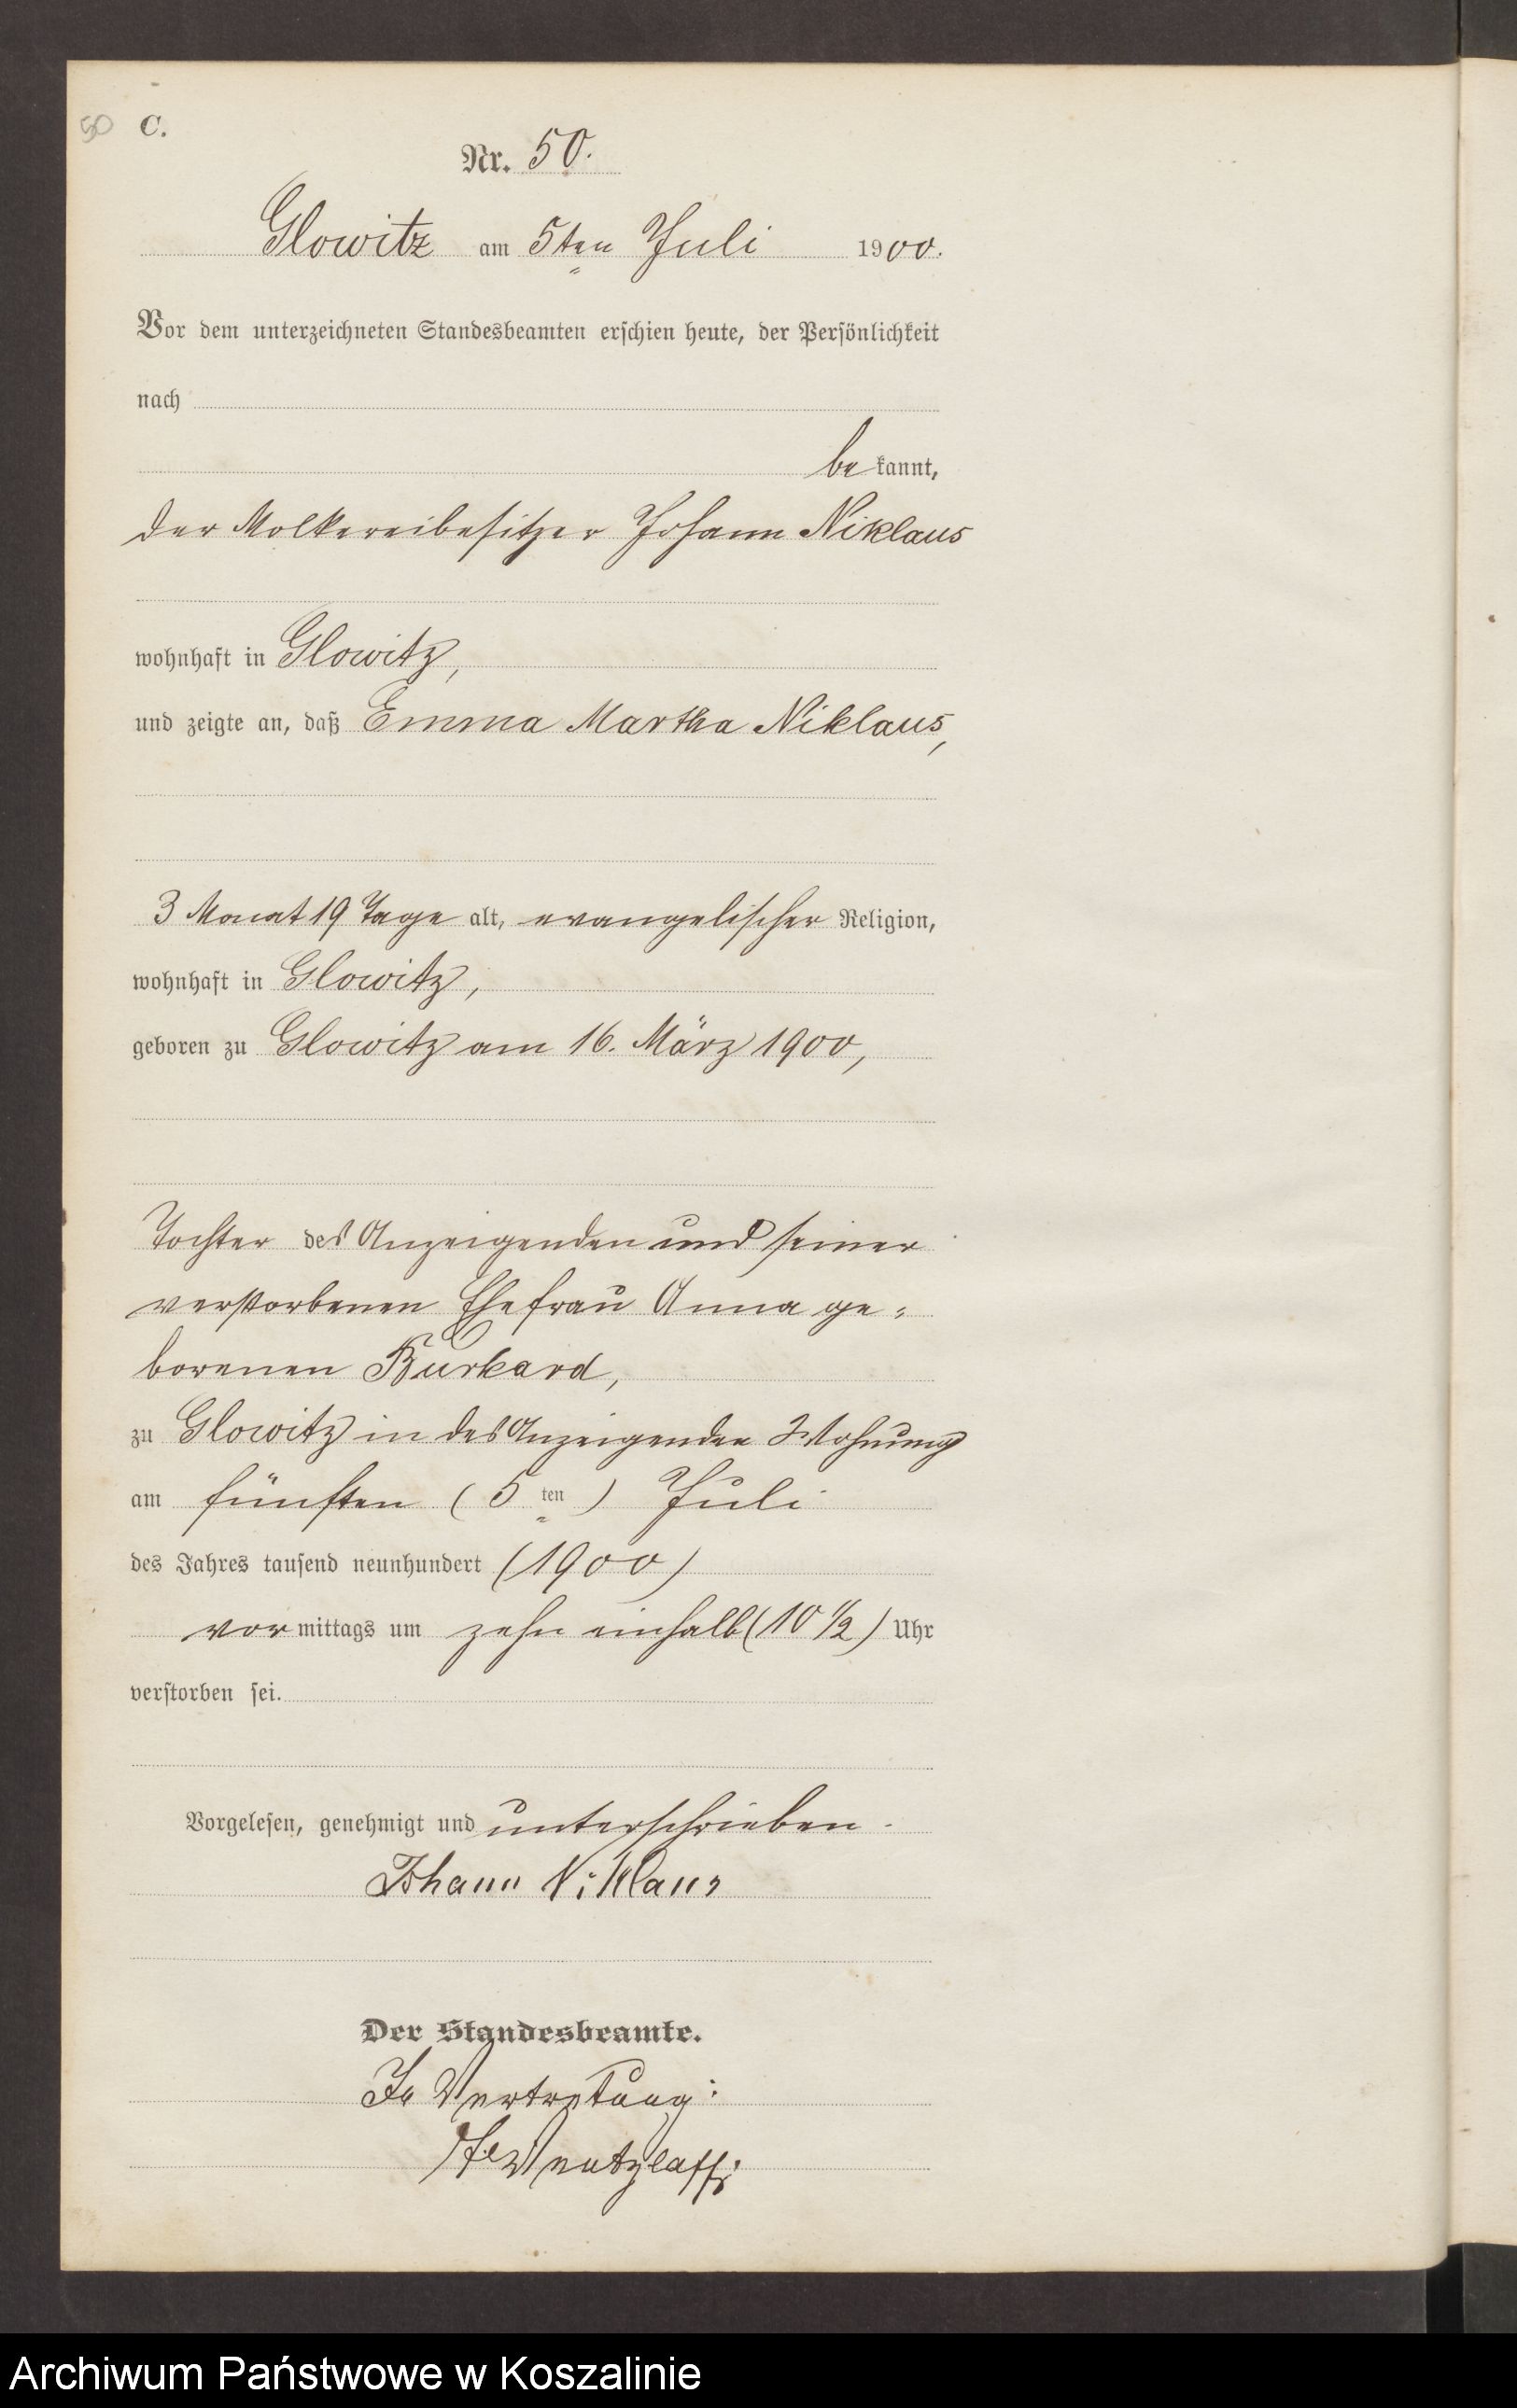 50 C.
Nr. 50.
Glowitz am 5ten Juli 1900.
Vor dem unterzeichneten Standesbeamten erschien heute, der Persönlichkeit
nach
bekannt,
der Molkereibesitzer Johann Niklaus
wohnhaft in Glowitz,
und zeigte an, daß Emma Martha Niklaus,
3 Monat 19 Tage alt, evangelischer Religion,
wohnhaft in Glowitz,
geboren zu Glowitz am 16. März 1900,
Tochter des Anzeigenden und seiner
verstorbenen Ehefrau Anna ge=
borenen Burkard,
zu Glowitz in des Anzeigenden Wohnung
am fünften (5 ten) Juli
des Jahres tausend neunhundert (1900)
vormittags um zehn einhalb (10 1/2) Uhr
verstorben sei.
Vorgelesen, genehmigt und unterschrieben.
Johann Niklaus
Der Standesbeamte.
In Vertretung:
Archiwum Państwowe w Koszalinie